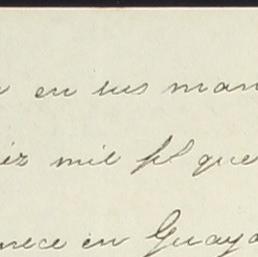 en sus man
iez mil fl que
nece en Guaya